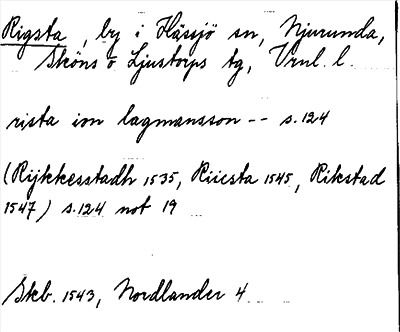 Rigsta, by i Hässjö sn, Njurunda,
Sköns o Ljustorps tg, Vrnl. l.
rista ion lagmansson -- s.124
(Rijkkesstadh 1535, Riicsta 1545, Rikstad
1547) s.124 not 19
Skb. 1543, Nordlander 4